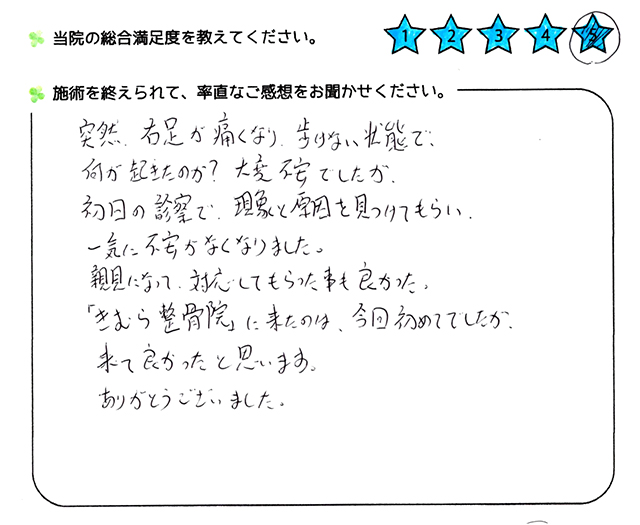 当院の総合満足度を教えてください。 1 2 3 4 5
施術を終えられて、率直なご感想をお聞かせください。
突然、右足が痛くなり、歩けない状態で、
何が起きたのか？大変不安でしたが、
初日の診察で、現象と原因を見つけてもらい、
一気に不安がなくなりました。
親身になって、対応してもらった事も良かった。
「きむら整骨院」に来たのは、今回初めてでしたが、
来て良かったと思います。
ありがとうございました。